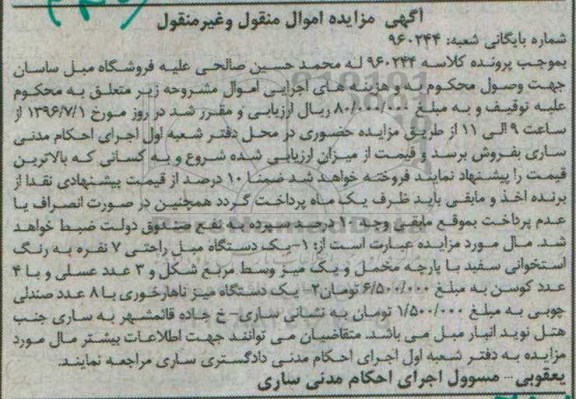 آگهی مزایده اموال منقول وغیرمنقول
شماره بایگانی شعبه: ۹۶۰۲۴۴
بموجب پرونده کلاسه ۹۶۰۲۴۴ له محمد حسین صالحی علیه فروشگاه مبل ساسان
جهت وصول محکوم به و هزینه های اجرایی اموال مشروحه زیر متعلق به محکوم
علیه توقیف و به مبلغ ۸۰/۰۰۰/۰۰۰ ریال ارزیابی و مقرر شد در روز مورخ ۱۳۹۶/۷/۱ از
ساعت ۹ الی ۱۱ از طریق مزایده حضوری در محل دفتر شعبه اول اجرای احکام مدنی
ساری بفروش برسد و قیمت از میزان ارزیابی شده شروع و به کسانی که بالاترین
قیمت را پیشنهاد نمایند فروخته خواهد شد ضمنا ۱۰ درصد از قیمت پیشنهادی نقدا از
برنده اخذ و مابقی باید ظرف یک ماه پرداخت گردد همچنین در صورت انصراف یا
عدم پرداخت بموقع مابقی وجه ۱۰ درصد سپرده به نفع صندوق دولت ضبط خواهد
شد. مال مورد مزایده عبارت است از: ۱-یک دستگاه مبل راحتی ۷ نفره به رنگ
استخوانی سفید با پارچه مخمل و یک میز وسط مربع شکل و ۳ عدد عسلی و با ۴
عدد کوسن به مبلغ ۶/۵۰۰/۰۰۰ تومان ۲- یک دستگاه میز ناهارخوری با ۸ عدد صندلی
چوبی به مبلغ ۱/۵۰۰/۰۰۰ تومان به نشانی ساری- خ جاده قائمشهر به ساری جنب
هتل نوید انبار مبل می باشد. متقاضیان می توانند جهت اطلاعات بیشتر مال مورد
مزایده به دفتر شعبه اول اجرای احکام مدنی دادگستری ساری مراجعه نمایند.
یعقوبی - مسوول اجرای احکام مدنی ساری